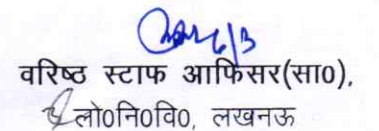 6/3
वरिष्ठ स्टाफ आफिसर(सा0),
लो0नि0वि0, लखनऊ